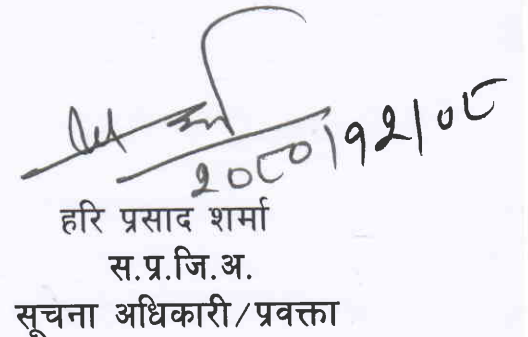 २०८०।१२।०८
हरि प्रसाद शर्मा
स.प्र.जि.अ.
सूचना अधिकारी/प्रवक्ता